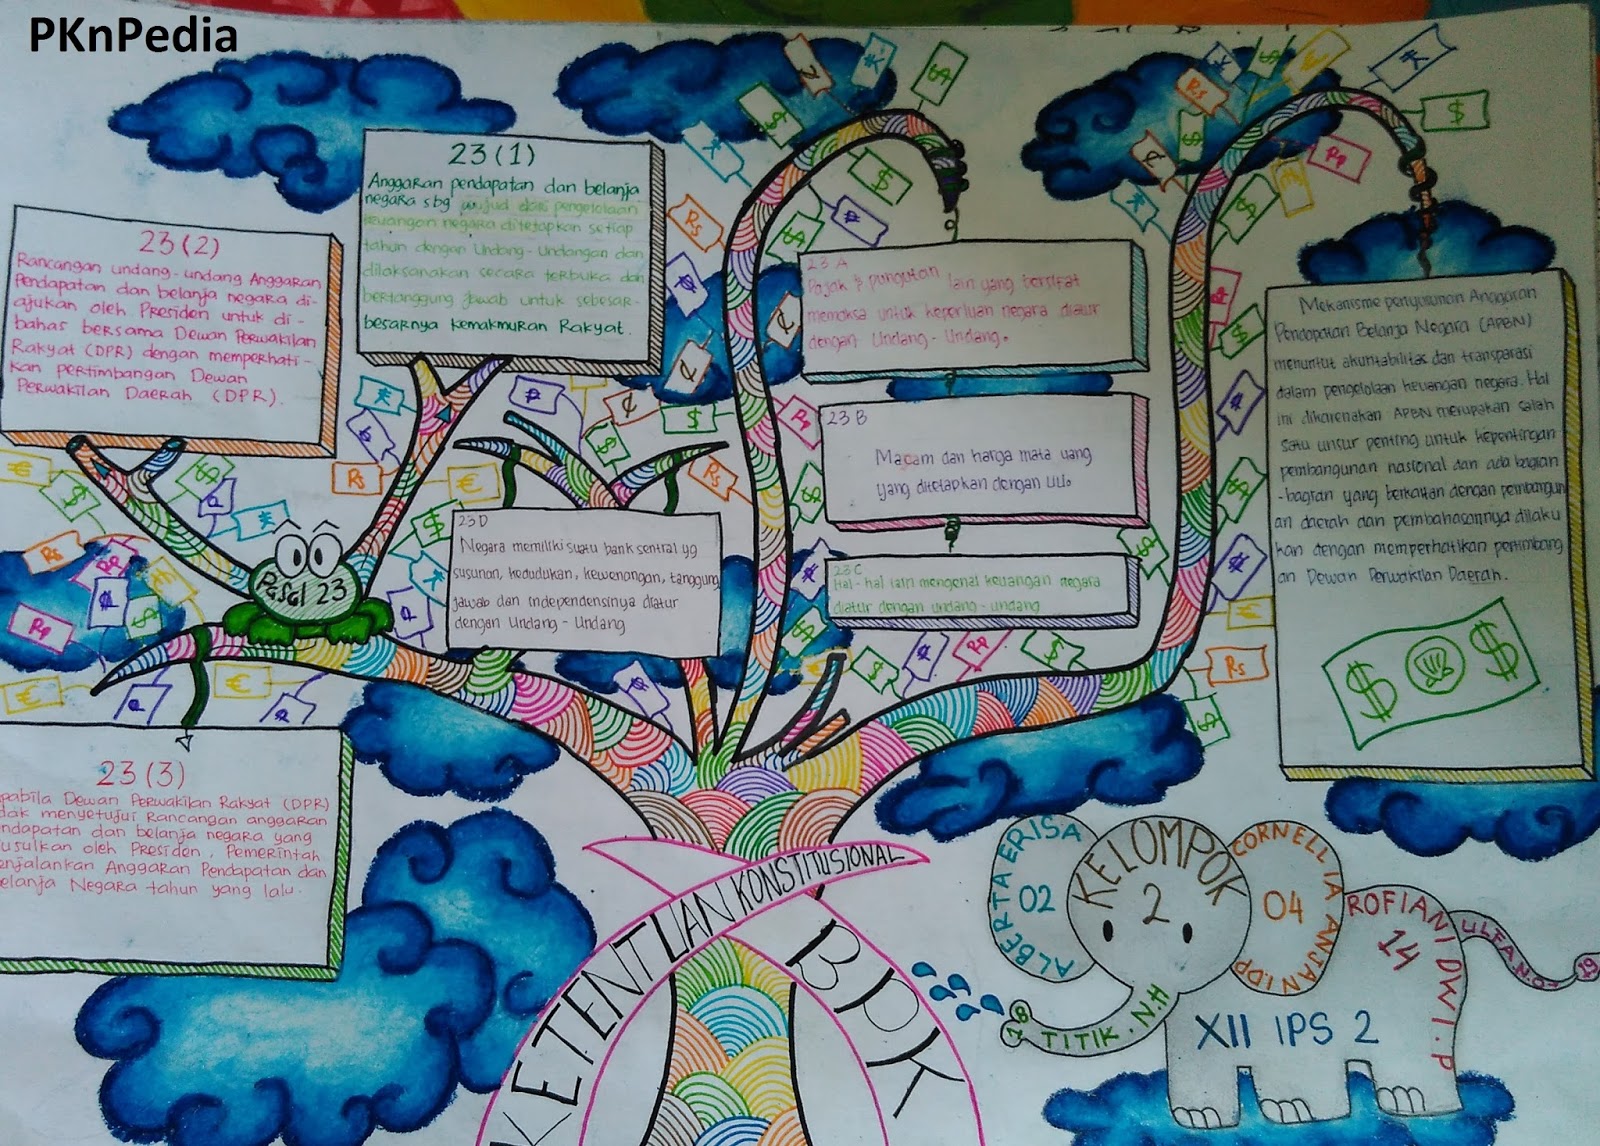 PKnPedia
23 (1)
Anggaran pendapatan dan belanja
negara sbg wujud dari pengelolaan
keuangan negara ditetapkan setiap
tahun dengan Undang-Undangan dan
dilaksanakan secara terbuka dan
bertanggung jawab untuk sebesar-
besarnya kemakmuran Rakyat.
23 (2)
Rancangan undang-undang Anggaran
Pendapatan dan belanja negara di-
ajukan oleh Presiden untuk di-
bahas bersama Dewan Perwakilan
Rakyat (DPR) dengan memperhati-
kan pertimbangan Dewan
Perwakilan Daerah (DPR).
Pasal 23
23 (3)
pabila Dewan Perwakilan Rakyat (DPR)
dak menyetujui Rancangan anggaran
ndapatan dan belanja negara yang
usulkan oleh Presiden, Pemerintah
enjalankan Anggaran Pendapatan dan
elanja Negara tahun yang lalu.
23 D
Negara memiliki suatu bank sentral yg
susunan, kedudukan, kewenangan, tanggung
jawab dan Independensinya diatur
dengan Undang-Undang
23 A
Pajak & pungutan lain yang bersifat
memaksa untuk keperluan negara diatur
dengan Undang-Undang.
23 B
Macam dan harga mata uang
yang ditetapkan dengan UU.
23 C
Hal-hal lain mengenai keuangan negara
diatur dengan undang-undang
Mekanisme penyusunan Anggaran
Pendapatan Belanja Negara (APBN)
menuntut akuntabilitas dan transparasi
dalam pengelolaan keuangan negara. Hal
ini dikarenakan APBN merupakan salah
satu unsur penting untuk kepentingan
pembangunan nasional dan ada bagian
-bagian yang berkaitan dengan pembangun
an daerah dan pembahasannya dilaku
kan dengan memperhatikan pertimbang
an Dewan Perwakilan Daerah.
KETENTUAN KONSTITUSIONAL
BPK
KELOMPOK
2
ALBERTA ERISA
02
CORNELLIA ANJANI.DP
04
ROFIANI DWI.P
14
ULFA N.O
19
TITIK.N.H
18
XII IPS 2